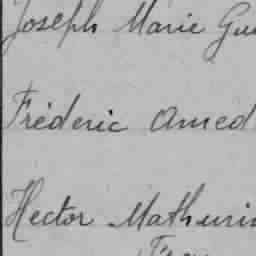 Joseph Marie Gu
Fréderic Amed
Hector Mathurin